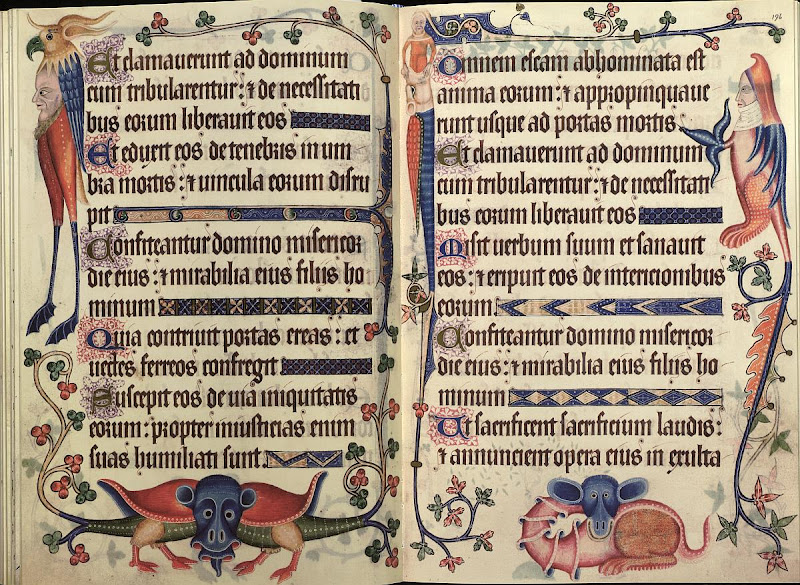 Et clamauerunt ad dominum
cum tribularentur: & de necessitati
bus eorum liberauit eos
Et eduxit eos de tenebris in um
bra mortis: & uincula eorum disru
pit
Confiteantur domino misericor
die eius: & mirabilia eius filiis ho
minum
Quia contriuit portas ereas: et
uectes ferreos confregit
Suscepit eos de uia iniquitatis
eorum: propter iniusticias enim
suas humiliati sunt.
196
Omnem escam abhominata est
anima eorum: & appropinquaue
runt usque ad portas mortis
Et clamauerunt ad dominum
cum tribularentur: & de necessitati
bus eorum liberauit eos
Misit uerbum suum et sanauit
eos: & eripuit eos de intericionibus
eorum.
Confiteantur domino misericor
die eius: & mirabilia eius filiis ho
minum
Ut sacrificent sacrificium laudis:
& annuncient opera eius in exulta